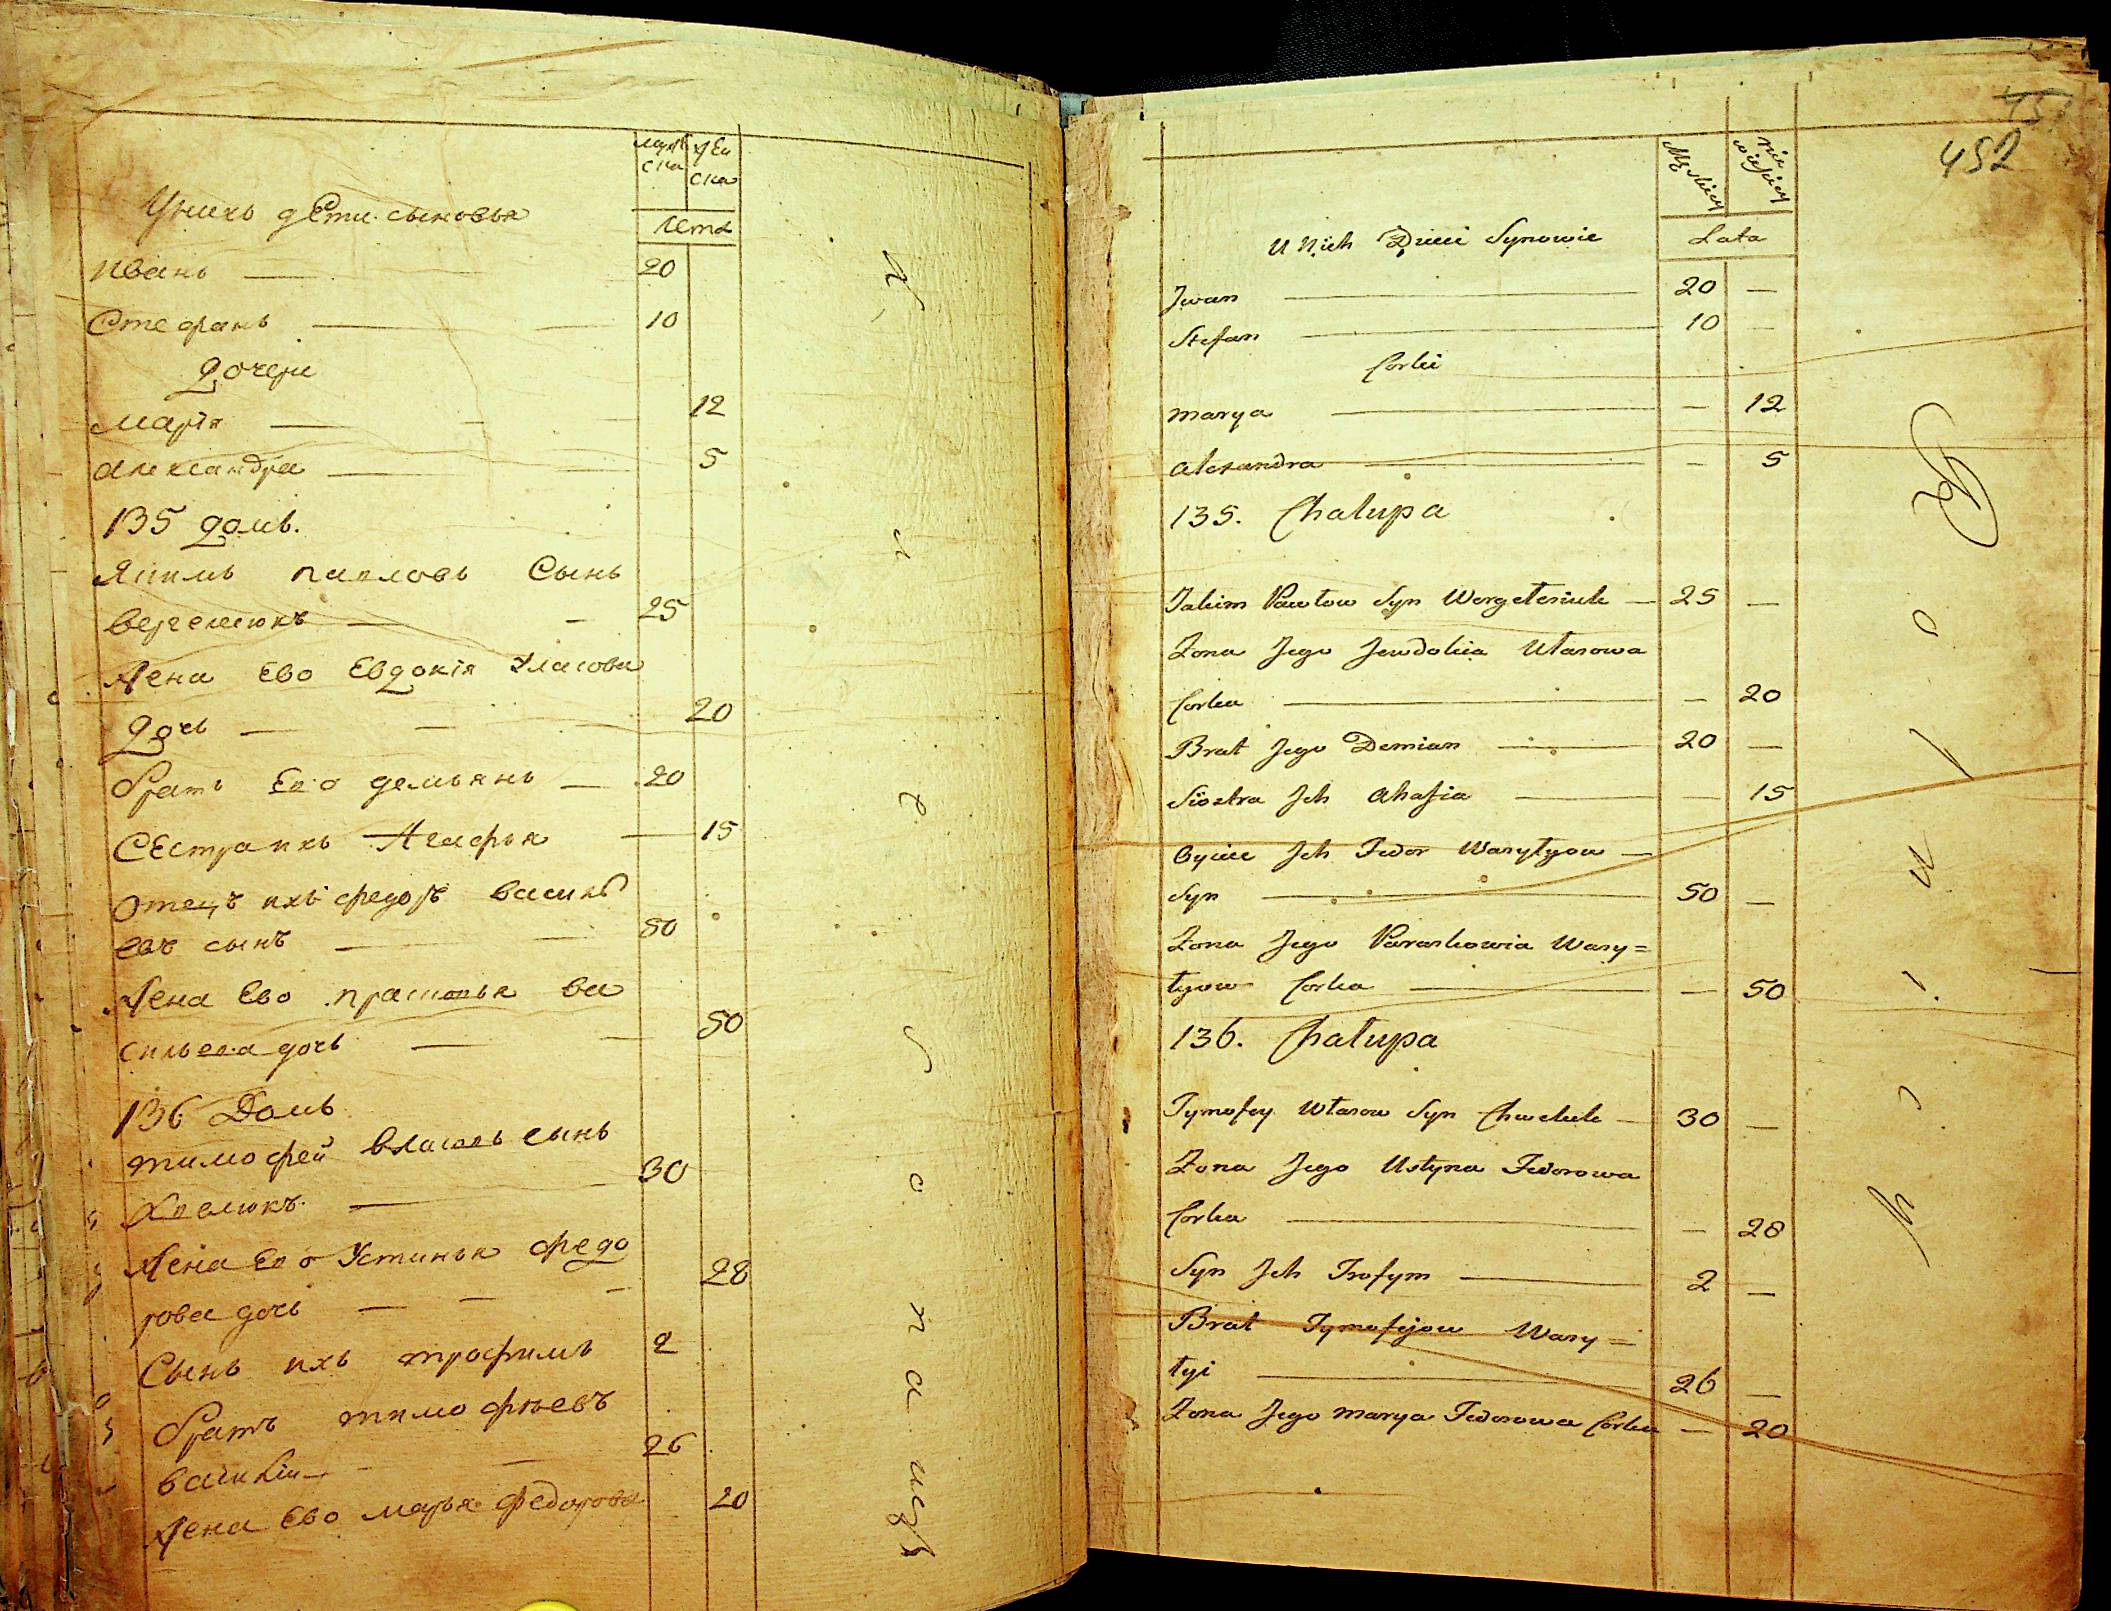 мужска женска
лета
У нихъ дети сыновья
иванъ — 20
Стефанъ — 10
дочери
марія — 12
александра — 5
135 домъ.
Якимъ павловъ Сынъ
вергелюкъ — 25
Жена Ево Евдокія Уласова
дочь — 20
братъ Ево демьянъ — 20
Сестра ихъ Агафья — 15
отецъ ихъ федоръ василь
евъ сынъ — 50
Жена Ево прасковья ва
сильева дочь — 50
136 Домъ
тимофей власовъ сынъ
Хвелюкъ — 30
Жена Ево Устинья федо
рова дочь — 28
Сынъ ихъ трофимъ 2
братъ тимофѣевъ
василій — 26
Жена Ево марья федорова 20
452
Męskiey niewieskiey
Lata
U Nich Dzieci Synowie
Jwan — 20 —
Stefan — 10 —
Corki
marya — — 12
alexandra — — 5
135. Chałupa
Jakim Pawłow Syn Wergeleniuk — 25 —
Żona Jego Jewdokia Ułasowa
Corka — — 20
Brat Jego Demian — 20 —
Siostra Jch Ahafia — 15
Oyciec Jch Fedor Wasylyow —
Syn — 50 —
Żona Jego Paraskowia Wasy=
lyow Corka — — 50
136. Chałupa
Tymofey Własow Syn Chweluk — 30 —
Żona Jego Ustyna Fedorowa
Corka — — 28
Syn Jch Trofym — 2 —
Brat Tymofijow Wasy=
lyi — 26 —
Żona Jego marya Fedorowa Corka — 20